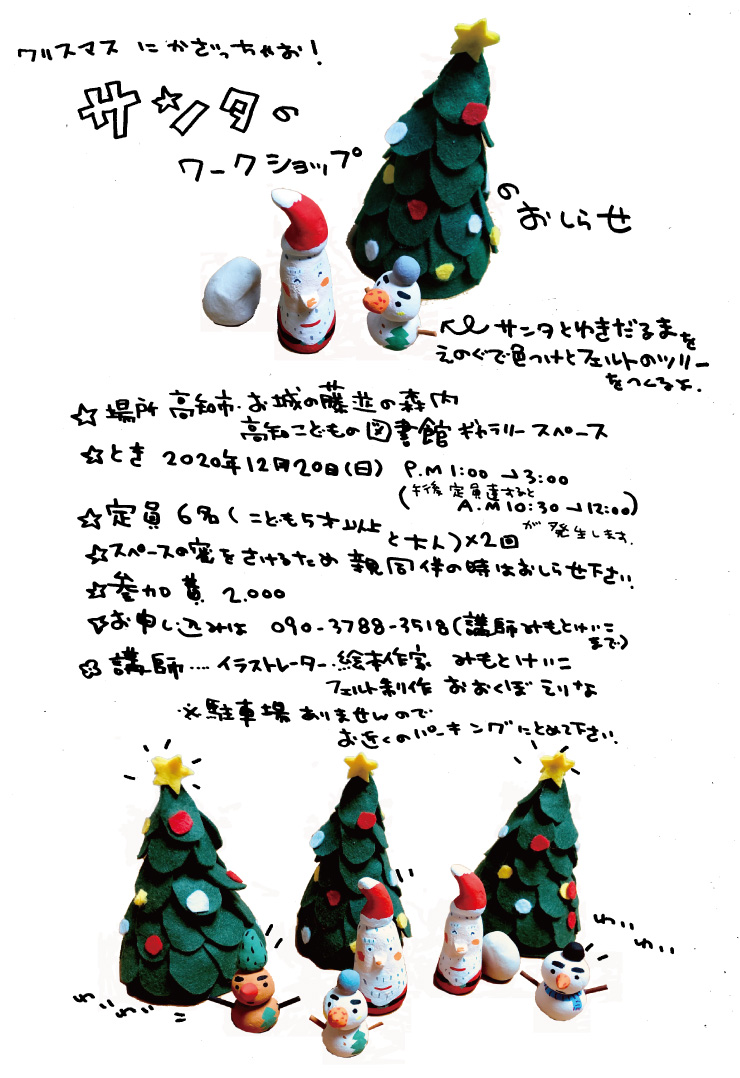 クリスマスにかざっちゃお!
サンタの
ワークショップ
のおしらせ
サンタとゆきだるまを
えのぐで色つけとフェルトのツリー
をつくるよ.
☆場所 高知市.お城の藤並の森内
高知こどもの図書館 ギャラリースペース
☆とき 2020年12月20日(日) P.M 1:00→3:00
(午後定員達すると
A.M 10:30→12:00)
が発生します.
☆定員 6名(こども5才以上
と大人)×2回
☆スペースの密をさけるため 親同伴の時はおしらせ下さい.
☆参加費 2.000
☆お申し込みは 090-3788-3518(講師みもとけいこ
まで)
☆講師....イラストレーター.絵本作家 みもとけいこ
フェルト制作 おおくぼえりな
※駐車場ありませんので
お近くのパーキングにとめて下さい.
わいわい
わいわい